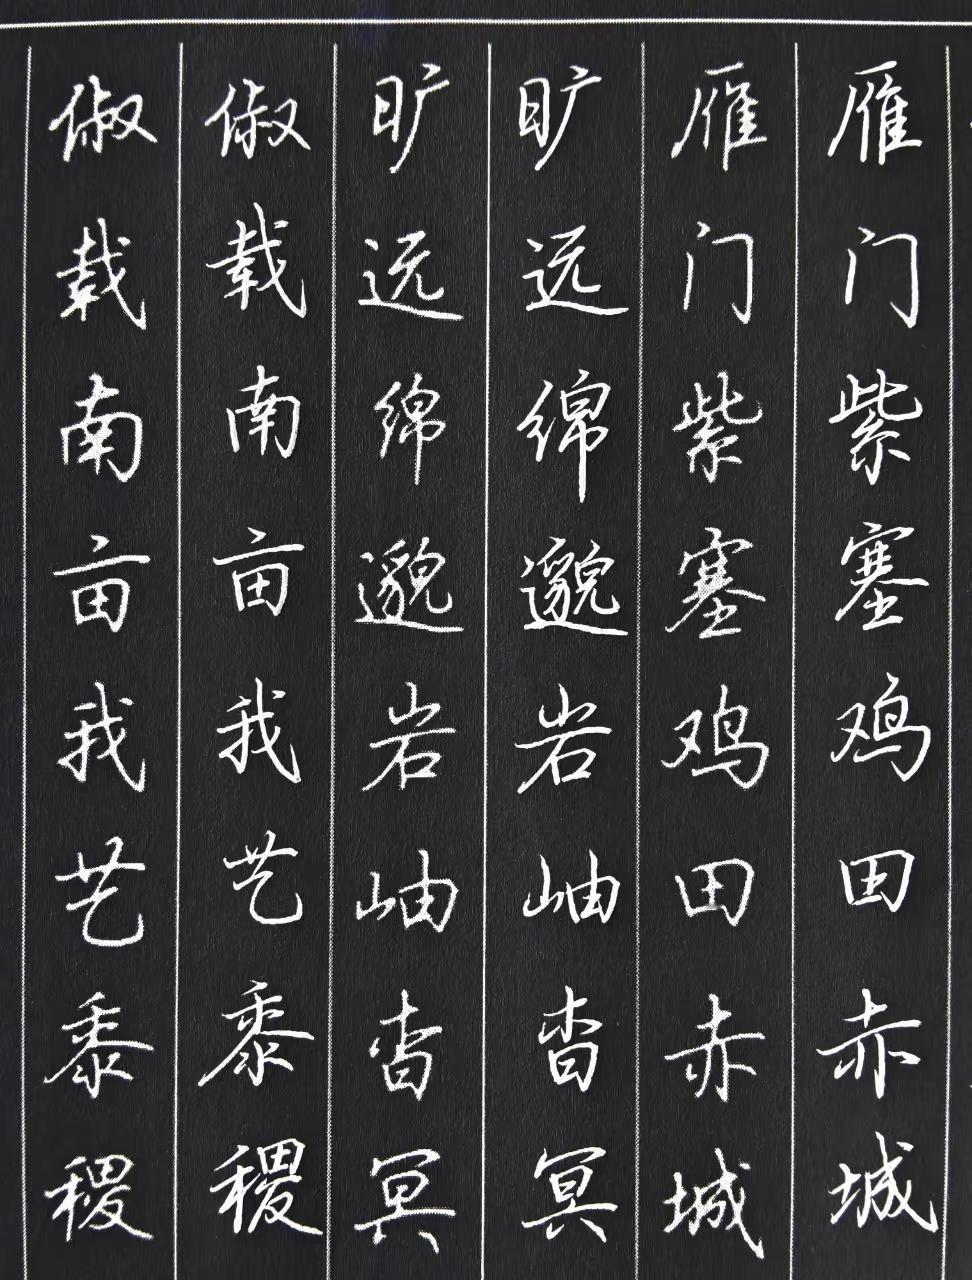 雁门紫塞鸡田赤城
雁门紫塞鸡田赤城
旷远绵邈岩岫杳冥
旷远绵邈岩岫杳冥
俶载南亩我艺黍稷
俶载南亩我艺黍稷